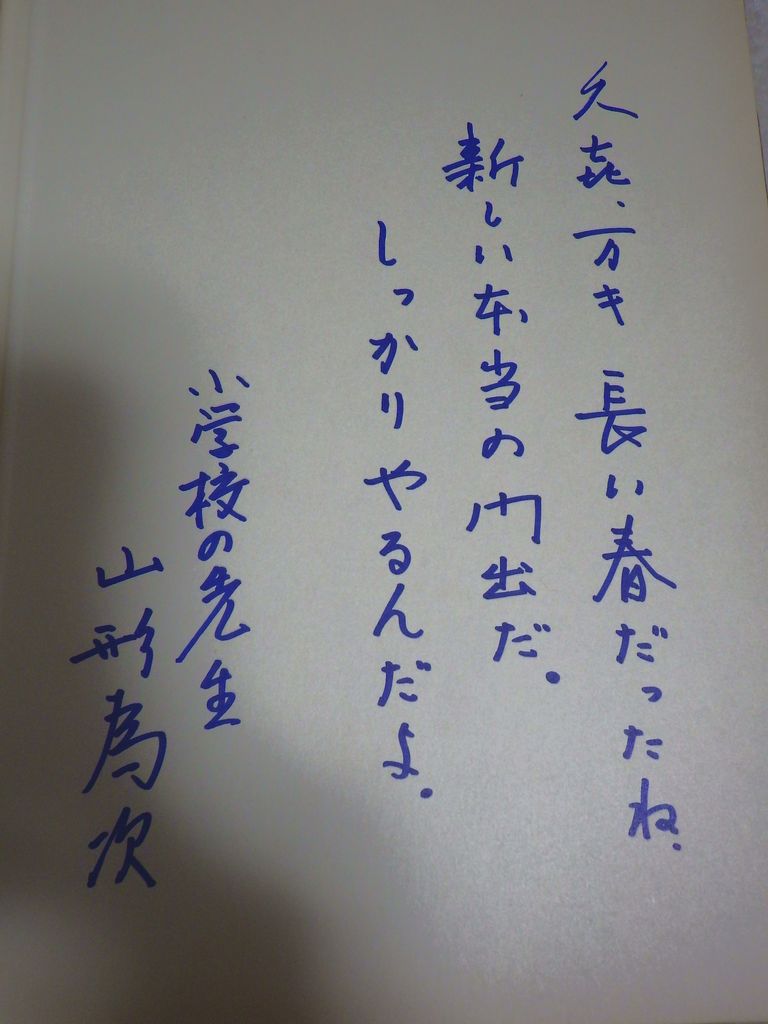 久㐂、万キ 長い春だったね。
新しい本当の門出だ。
しっかりやるんだよ。
小学校の先生
山形為次